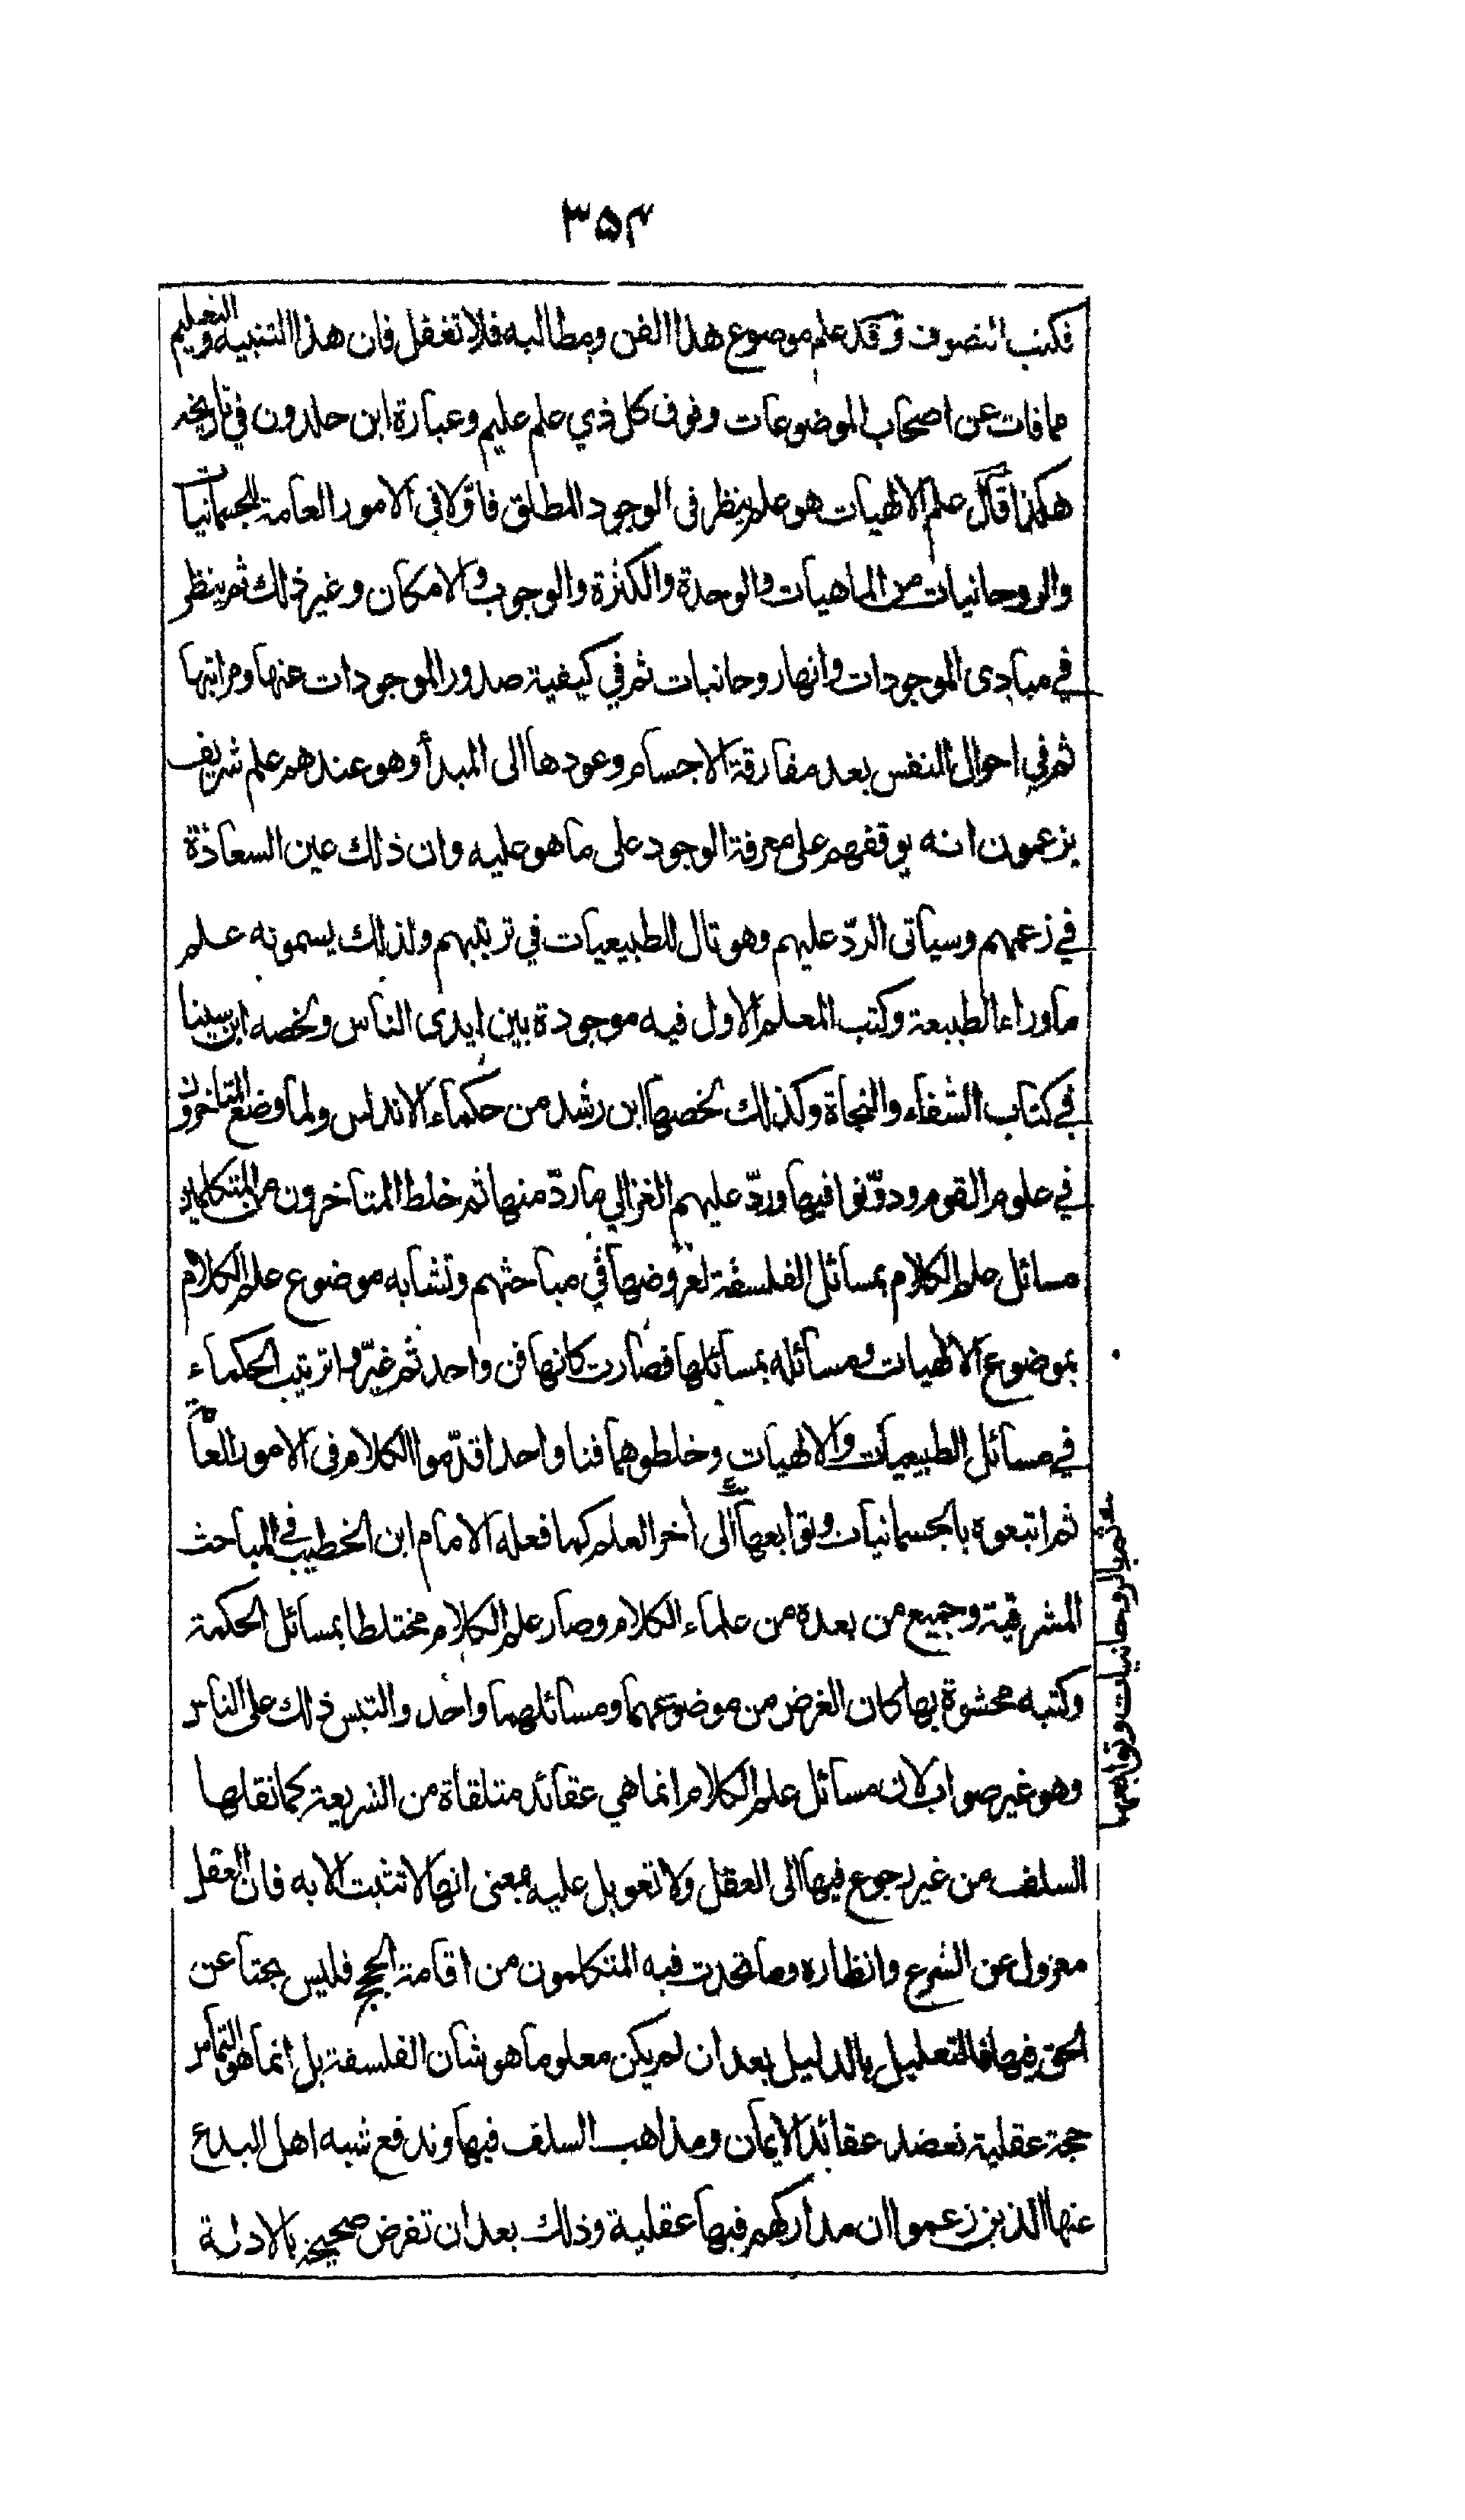 ۳۵۴
فكتب التصوف وقد علم موضوع هذا الفن ومطالبه فلا تغفل فان هذا التنبيه والتعليم
مما فات عن اصحاب الموضوعات وفوق كل ذي علم عليم وعبارة ابن خلدون في تاريخه
هكذا قال علم الالهيات هو علم ينظر فى الوجود المطلق فاولا في الامور العامة للجسمانيات
والروحانيات من الماهيات والوحدة والكثرة والوجوب والامكان وغير ذلك ثم ينظر
في مبادى الموجودات وانها روحانيات ثم في كيفية صدور الموجودات عنها ومراتبها
ثم في احوال النفس بعد مفارقة الاجسام وعودها الى المبدأ وهو عندهم علم شريف
يزعمون انه يوقفهم على معرفة الوجود على ما هو عليه وان ذلك عين السعادة
في زعمهم وسيأتى الردّ عليهم وهو تال للطبيعيات في ترتيبهم ولذلك يسمونه علم
ما وراء الطبيعة وكتب المعلم الاول فيه موجودة بين ايدى الناس ولخصه ابن سينا
في كتاب الشفاء والنجاة وكذلك لخصها ابن رشد من حكماء الاندلس ولما وضع المتاخرون
في علوم القوم ودوّنوا فيها وردّ عليهم الغزالي ما ردّ منها ثم خلط المتاخرون من المتكلمين
مسائل علم الكلام بمسائل الفلسفة لعروضها في مباحثهم وتشابه موضوع علم الكلام
بموضوع الالهيات ومسائله بمسائلها فصارت كانها فن واحد ثم غيّروا ترتيب الحكماء
في مسائل الطبيعيات والالهيات وخلطوهما فنا واحدا قدّموا الكلام فى الامور العامة
ثم اتبعوه بالجسمانيات وتوابعها الى اخر العلم كما فعله الامام ابن الخطيب في المباحث
ثم بالروحانيات وتوابعها
المشرقية وجميع من بعده من علماء الكلام وصار علم الكلام مختلطا بمسائل الحكمة
وكتبه محشوة بها كان الغرض من موضوعهما ومسائلهما واحد والتبس ذلك على الناس
وهو غير صواب لان مسائل علم الكلام انما هي عقائد متلقاة من الشريعة كما نقلها
السلف من غير رجوع فيها الى العقل ولا تعويل عليه بمعنى انها لا تثبت الا به فان العقل
معزول عن الشرع وانظاره وما تحدث فيه المتكلمون من اقامة الحجج فليس بحثا عن
الحق فيها فالتعليل بالدليل بعد ان لم يكن معلوما هو شان الفلسفة بل انما هو التماس
حجة عقلية تعضد عقائد الايمان ومذاهب السلف فيها وتدفع شبه اهل البدع
عنها الذين زعموا ان مداركهم فيها عقلية وذلك بعد ان تفرض صحيحة بالادلة